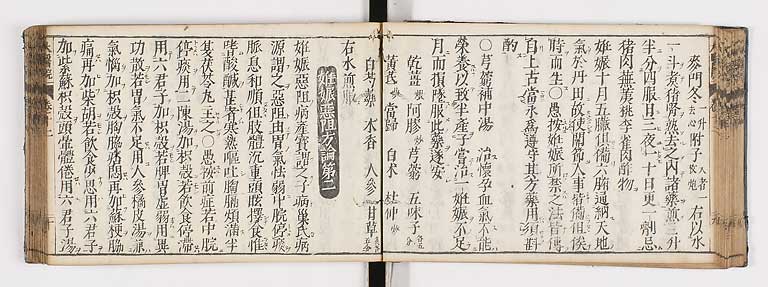 麥門冬一升去心 附子大者一枚炮 右以水
一斗煮猪腎熟去之内諸藥煎三升
半分四服日三夜一十日更一劑忌
猪肉蕪荑桃李雀肉酢物
妊娠十月五臟俱備六腑通納天地
氣於丹田故使關節人事皆備俱俟
時而生〇愚按妊娠所禁之法皆傳
自上古當永爲遵守其方藥用須斟
酌
〇芎藭補中湯 治懷孕血氣不能
榮養以致半產子當治一妊娠不足
月而損墜服此藥遂安
乾薑炮 阿膠炒 芎藭 五味子各五分
黃芪炒 當歸 白朮 杜仲炒
白芍藥 木香 人參 甘草各五分
右水煎服
妊娠惡阻方論第二
妊娠惡阻病產寶謂之子病巢氏病
源謂之惡阻由胃氣怯弱中脘停痰
脉息和順但肢體沉重頭眩擇食惟
嗜酸鹹甚者寒熱嘔吐胸膈煩滿半
夏茯苓丸主之〇愚按前症若中脘
停痰用二陳湯加枳殼若飲食停滯
用六君子加枳殼若脾胃虛弱用異
功散若胃氣不足用人參橘皮湯兼
氣惱加枳殼胸脇痞悶再加蘇梗脇
痛再加柴胡若飲食少思用六君子
加紫蘇枳殼頭暈體倦用六君子湯